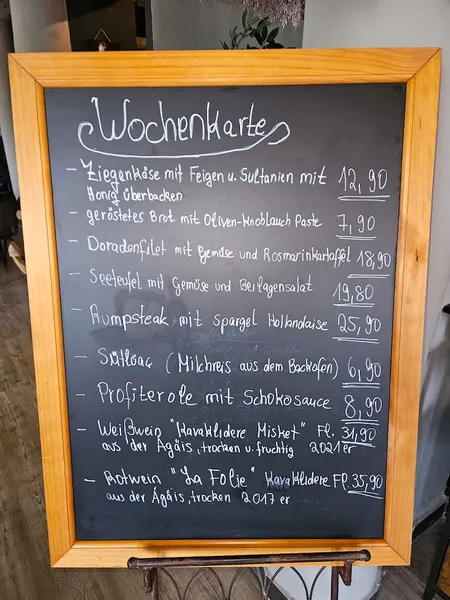 Wochenkarte
- Ziegenkäse mit Feigen u. Sultanien mit 12,90
Honig überbacken
- geröstetes Brot mit Oliven-Knoblauch Paste 7,90
- Doradenfilet mit Gemüse und Rosmarinkartoffel 18,90
- Seeteufel mit Gemüse und Beilagensalat 19,80
- Rumpsteak mit Spargel Hollandaise 25,90
- Sütlaç (Milchreis aus dem Backofen) 6,90
- Profiterole mit Schokosauce 8,90
- Weißwein "Kavaklidere Misket" Fl. 31,90
aus der Ägäis, trocken u. fruchtig 2021er
- Rotwein "La Folie" Kavaklidere Fl. 35,90
aus der Ägäis, trocken 2017er